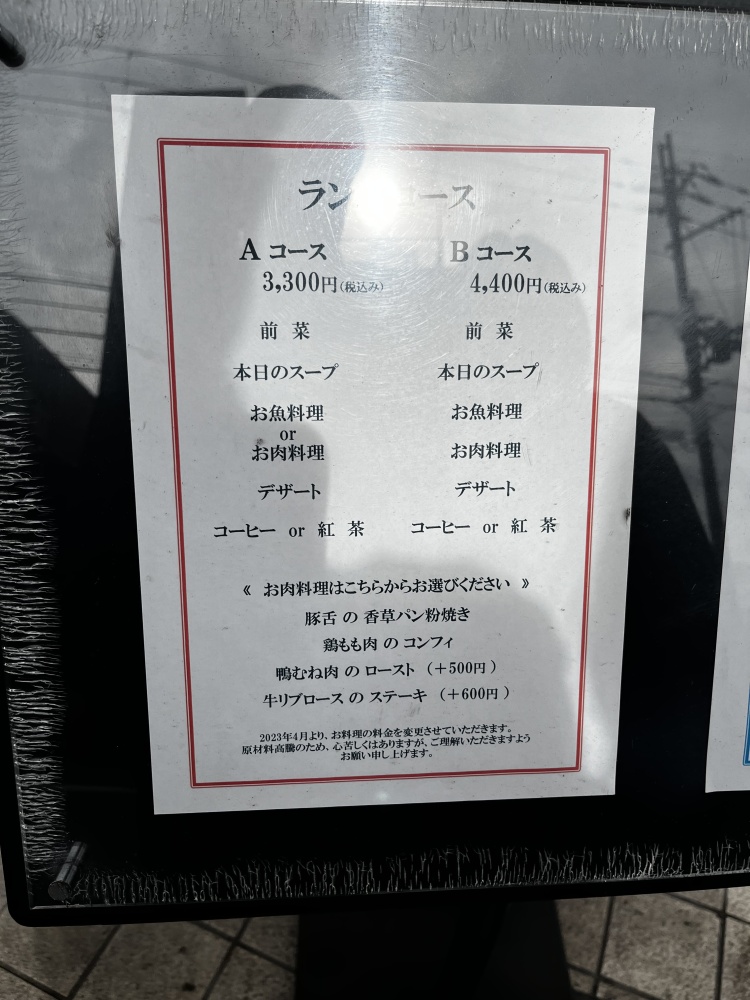 ラン ース
A コース
3,300円(税込み)
前 菜
本日のスープ
お魚料理
or
お肉料理
デザート
コーヒー or 紅 茶
B コース
4,400円(税込み)
前 菜
本日のスープ
お魚料理
お肉料理
デザート
コーヒー or 紅 茶
《 お肉料理はこちらからお選びください 》
豚舌 の 香草パン粉焼き
鶏もも肉 の コンフィ
鴨むね肉 の ロースト (+500円)
牛リブロース の ステーキ (+600円)
2023年4月より、お料理の料金を変更させていただきます。
原材料高騰のため、心苦しくはありますが、ご理解いただきますよう
お願い申し上げます。